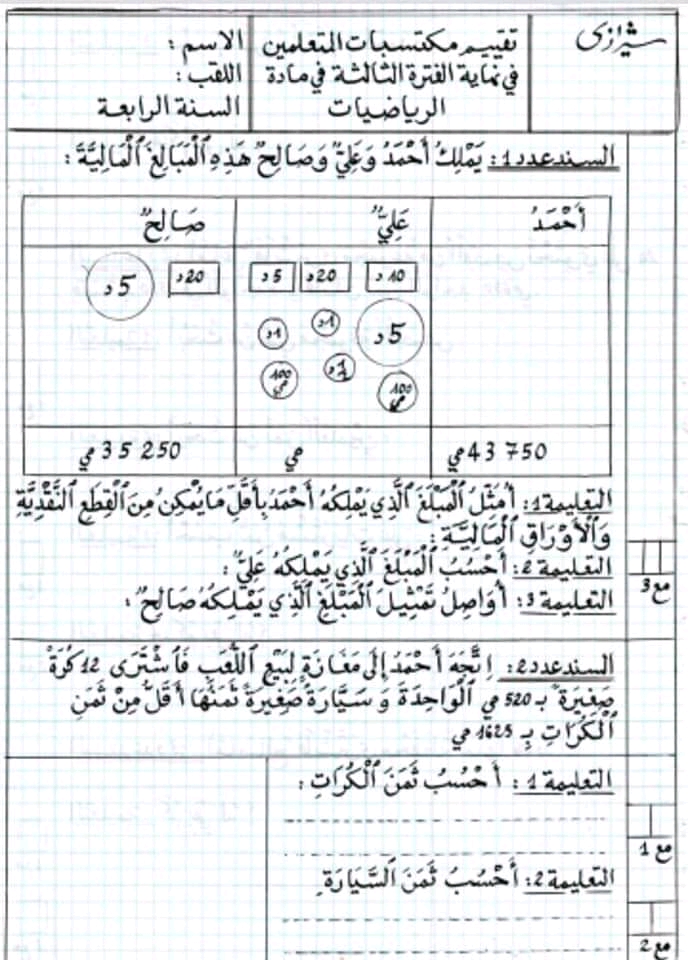 شيرازي
تقييم مكتسبات المتعلمين
في نهاية الفترة الثالثة في مادة
الرياضيات
الاسم :
اللقب :
السنة الرابعة
السند عدد 1 : يَمْلِكُ أَحْمَدُ وَعَلِيٌّ وَصَالِحٌ هَذِهِ الْمَبَالِغَ الْمَالِيَّةَ :
أَحْمَدُ عَلِيٌّ صَالِحٌ
10د 20د 5د 20د 5د
5د 1د 1د
100 مي 1د 100 مي
43 750 مي مي 35 250 مي
التعليمة 1 : أُمَثِّلُ الْمَبْلَغَ الَّذِي يَمْلِكُهُ أَحْمَدُ بِأَقَلِّ مَا يُمْكِنُ مِنَ الْقِطَعِ النَّقْدِيَّةِ
وَالْأَوْرَاقِ الْمَالِيَّةِ :
التعليمة 2 : أَحْسُبُ الْمَبْلَغَ الَّذِي يَمْلِكُهُ عَلِيٌّ :
التعليمة 3 : أُوَاصِلُ تَمْثِيلَ الْمَبْلَغِ الَّذِي يَمْلِكُهُ صَالِحٌ :
مع 3
السند عدد 2 : اِتَّجَهَ أَحْمَدُ إِلَى مَغَازَةٍ لِبَيْعِ اللُّعَبِ فَاشْتَرَى 12 كُرَةً
صَغِيرَةً بـ 520 مي الْوَاحِدَةَ وَ سَيَّارَةً صَغِيرَةً ثَمَنُهَا أَقَلُّ مِنْ ثَمَنِ
الْكُرَاتِ بِـ 1625 مي
التعليمة 1 : أَحْسُبُ ثَمَنَ الْكُرَاتِ :
مع 1
التعليمة 2 : أَحْسُبُ ثَمَنَ السَّيَّارَةِ
مع 2